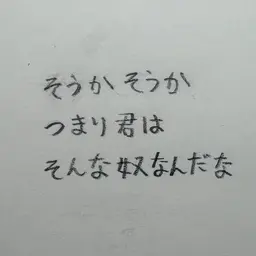 そうか そうか
つまり君は
そんな奴なんだな